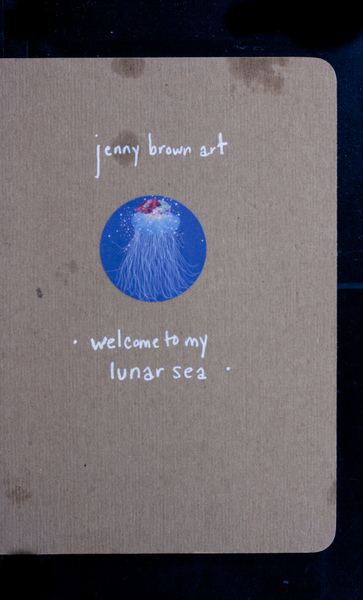 jenny brown art
• welcome to my
lunar sea •